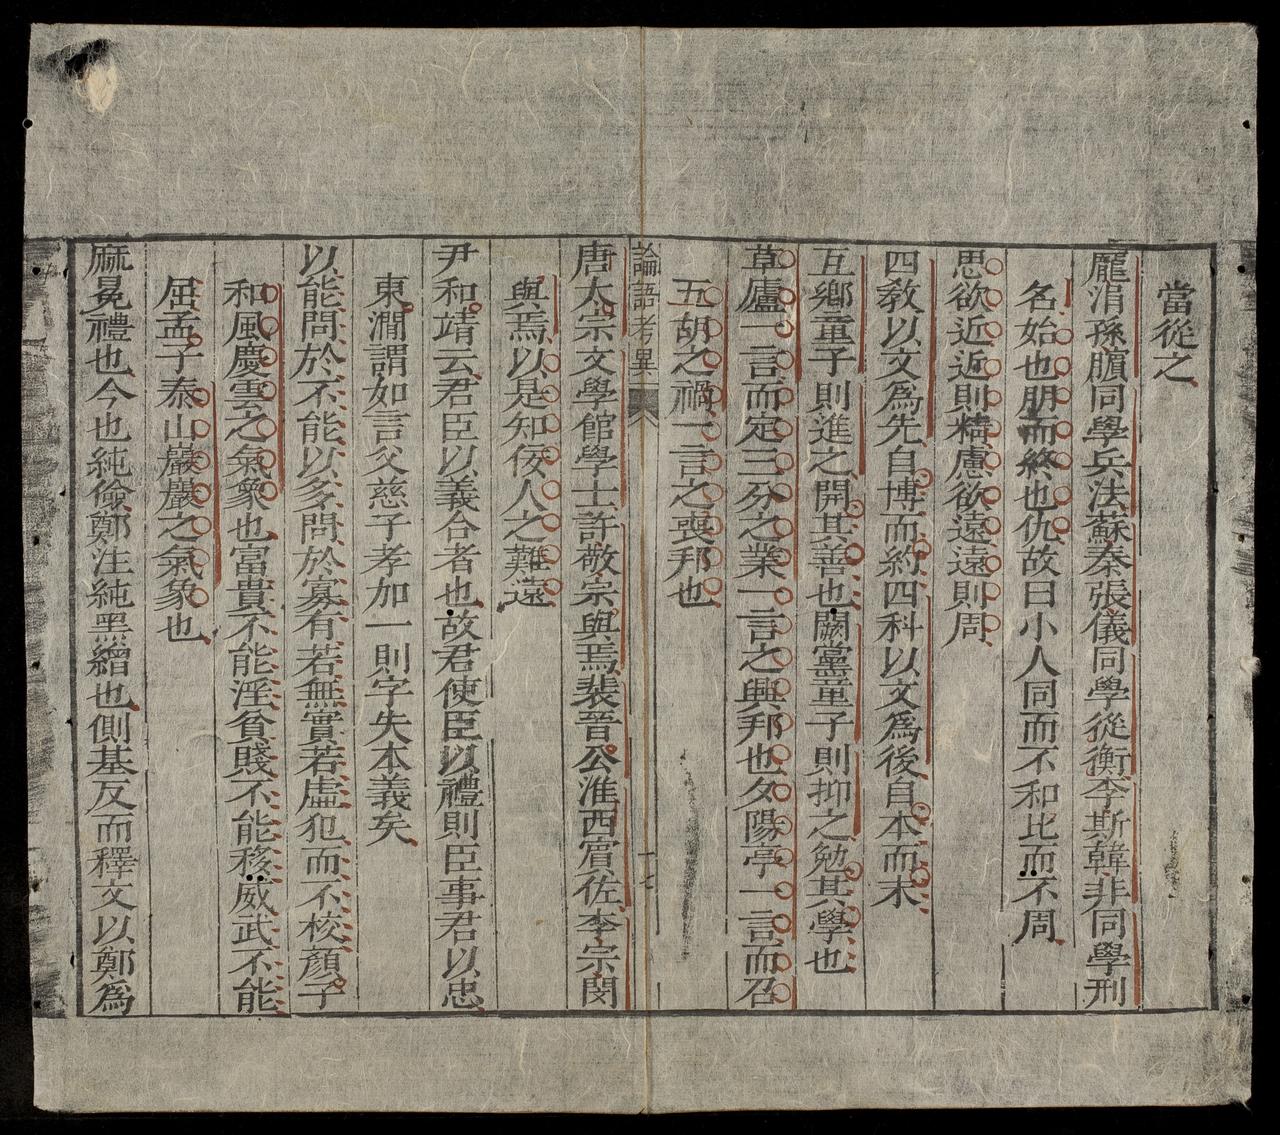 當從之
龐涓孫臏同學兵法蘇秦張儀同學從衡李斯韓非同學刑
名始也朋而終也仇故曰小人同而不和比而不周
思欲近近則精慮欲遠遠則周
四教以文爲先自博而約四科以文爲後自本而末
互鄉童子則進之開其善也闕黨童子則抑之勉其學也
草廬一言而定三分之業一言之興邦也夕陽亭一言而召
五胡之禍一言之喪邦也
論語考異
十七
唐太宗文學館學士許敬宗與焉裴晉公淮西賓佐李宗閔
與焉以是知佞人之難遠
尹和靖云君臣以義合者也故君使臣以禮則臣事君以忠
東澗謂如言父慈子孝加一則字失本義矣
以能問於不能以多問於寡有若無實若虛犯而不校顏子
和風慶雲之氣象也富貴不能淫貧賤不能移威武不能
屈孟子泰山巖巖之氣象也
麻冕禮也今也純儉鄭注純黑繒也側基反而釋文以鄭爲